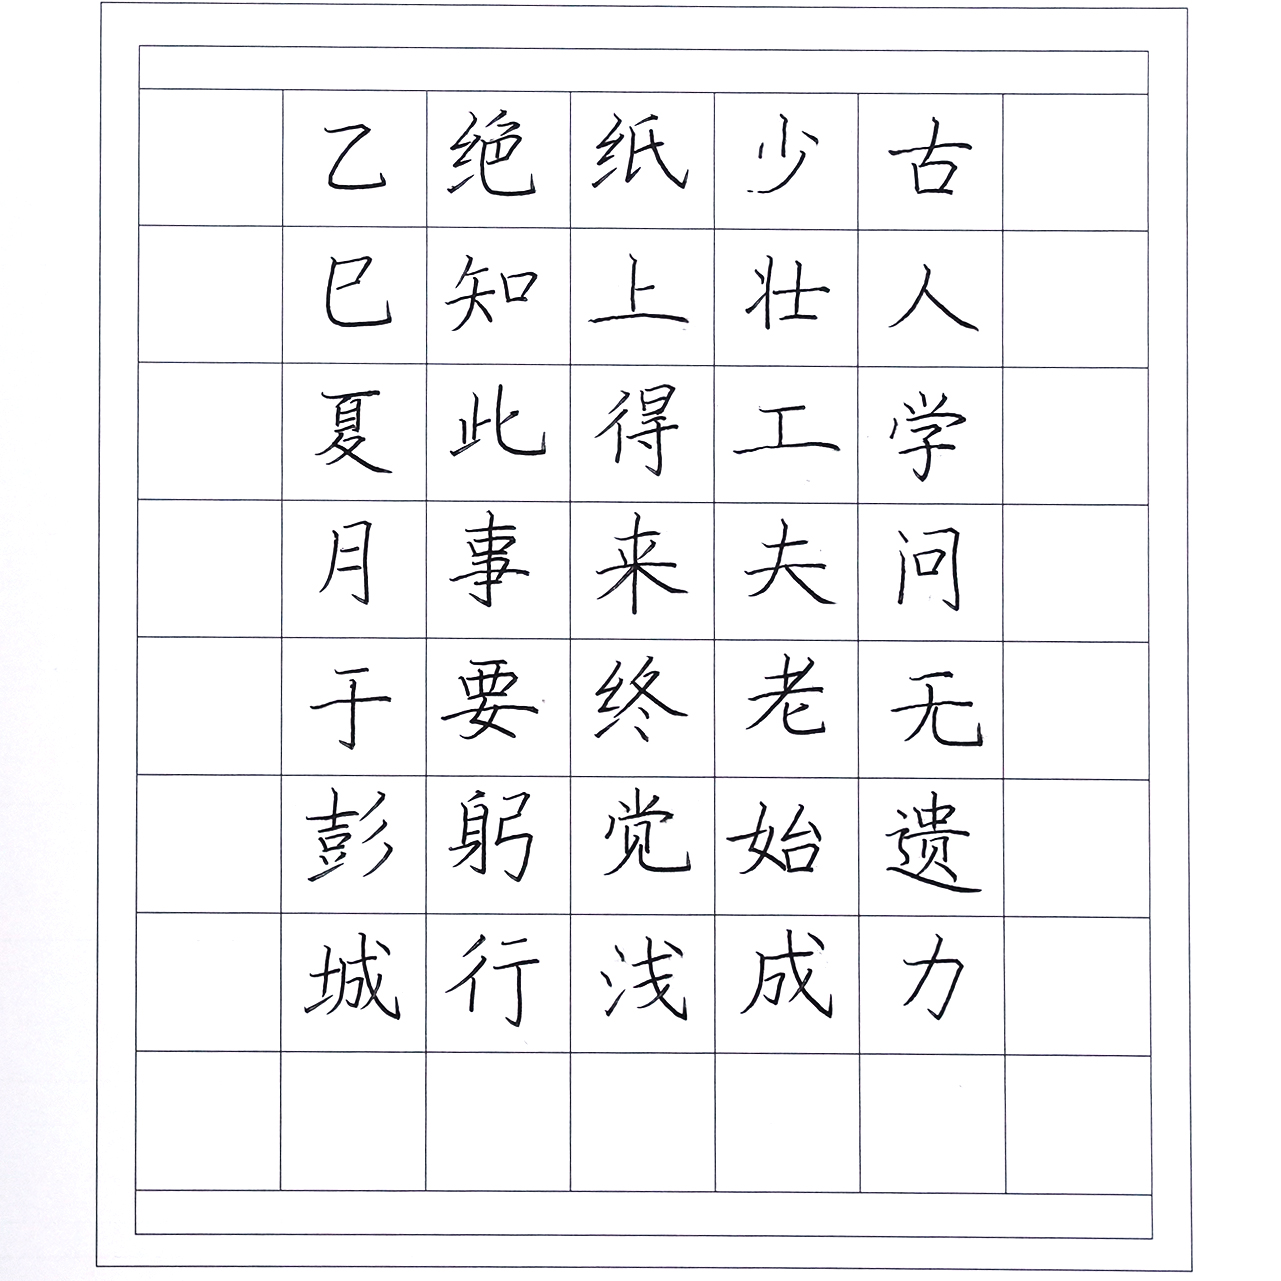 古人学问无遗力
少壮工夫老始成
纸上得来终觉浅
绝知此事要躬行
乙巳夏月于彭城